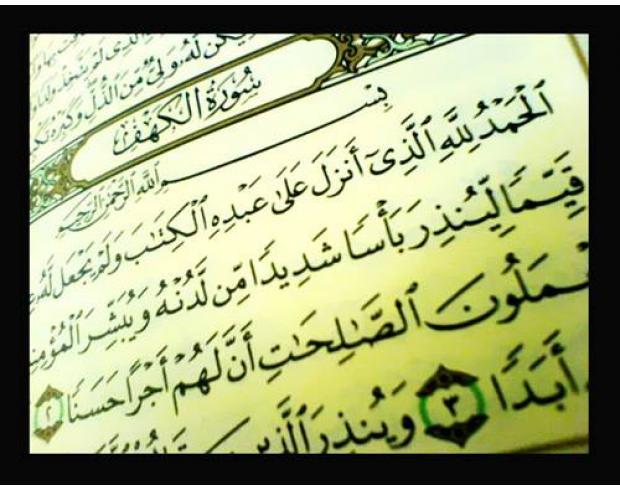 يَكُن لَّهُۥ وَلِىٌّ مِّنَ ٱلذُّلِّ وَكَبِّرْهُ
سُورَةُ الْكَهْفِ
بِسْمِ ٱللَّهِ ٱلرَّحْمَٰنِ ٱلرَّحِيمِ
ٱلْحَمْدُ لِلَّهِ ٱلَّذِىٓ أَنزَلَ عَلَىٰ عَبْدِهِ ٱلْكِتَٰبَ وَلَمْ يَجْعَل لَّهُۥ
قَيِّمًا لِّيُنذِرَ بَأْسًا شَدِيدًا مِّن لَّدُنْهُ وَيُبَشِّرَ ٱلْمُؤْمِنِ
عْمَلُونَ ٱلصَّٰلِحَٰتِ أَنَّ لَهُمْ أَجْرًا حَسَنًا ٢
أَبَدًا ٣ وَيُنذِرَ ٱلَّذِينَ